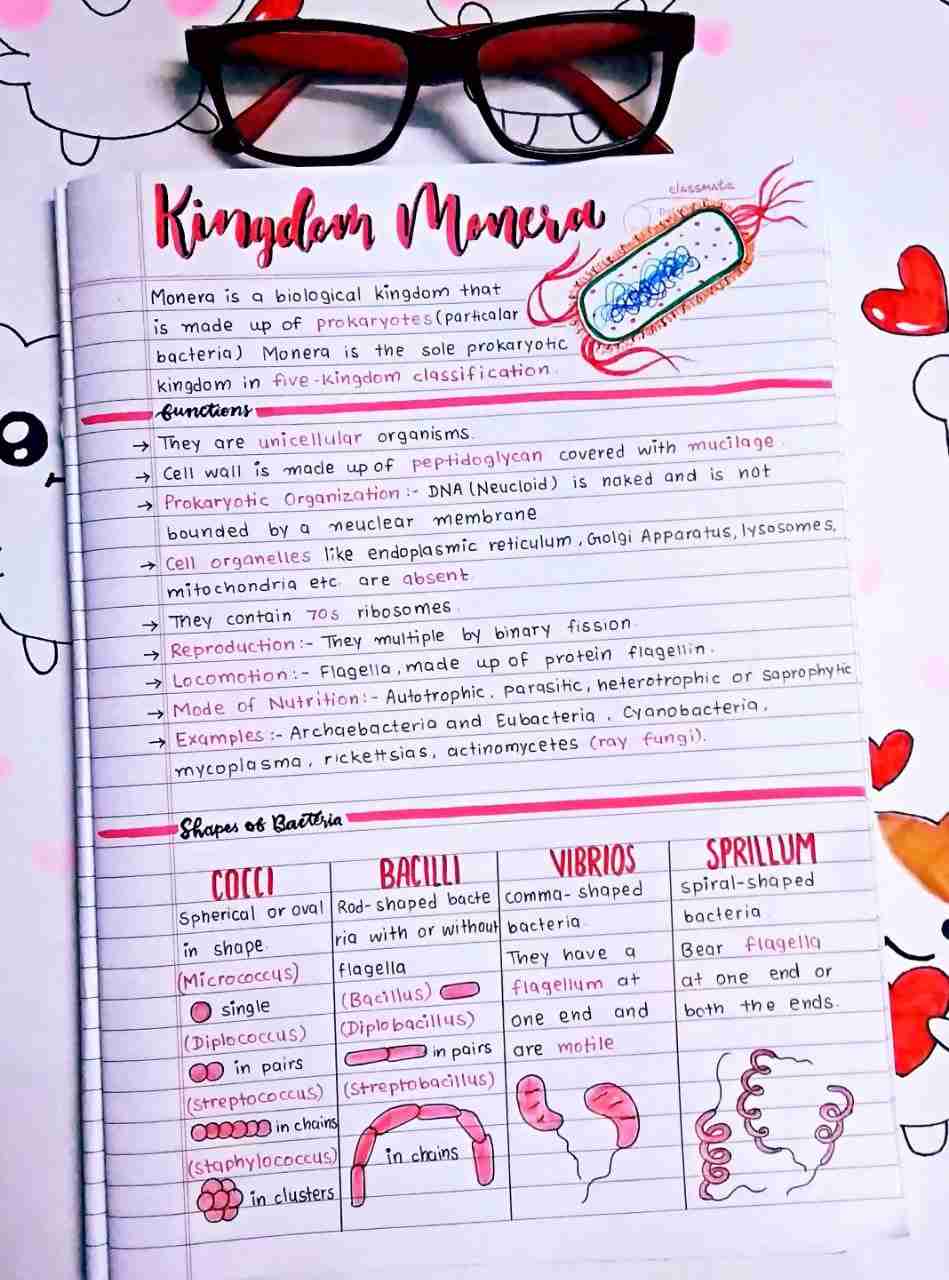 Kingdom Monera
classmate
Monera is a biological kingdom that
is made up of prokaryotes (particalar
bacteria) Monera is the sole prokaryotic
kingdom in five-kingdom classification.
functions
→ They are unicellular organisms.
→ Cell wall is made up of peptidoglycan covered with mucilage.
→ Prokaryotic Organization:- DNA (Neucloid) is naked and is not
bounded by a neuclear membrane
→ Cell organelles like endoplasmic reticulum, Golgi Apparatus, lysosomes,
mitochondria etc. are absent.
→ They contain 70s ribosomes.
→ Reproduction:- They multiple by binary fission.
→ Locomotion:- Flagella, made up of protein flagellin.
→ Mode of Nutrition:- Autotrophic, parasitic, heterotrophic or saprophytic
→ Examples:- Archaebacteria and Eubacteria, Cyanobacteria,
mycoplasma, rickettsias, actinomycetes (ray fungi).
Shapes of Bacteria
COCCI
Spherical or oval
in shape.
(Micrococcus)
single
(Diplococcus)
in pairs
(Streptococcus)
in chains
(staphylococcus)
in clusters
BACILLI
Rod-shaped bacte
ria with or without
flagella
(Bacillus)
(Diplobacillus)
in pairs
(streptobacillus)
in chains
VIBRIOS
comma-shaped
bacteria.
They have a
flagellum at
one end and
are motile
SPRILLUM
spiral-shaped
bacteria.
Bear flagella
at one end or
both the ends.